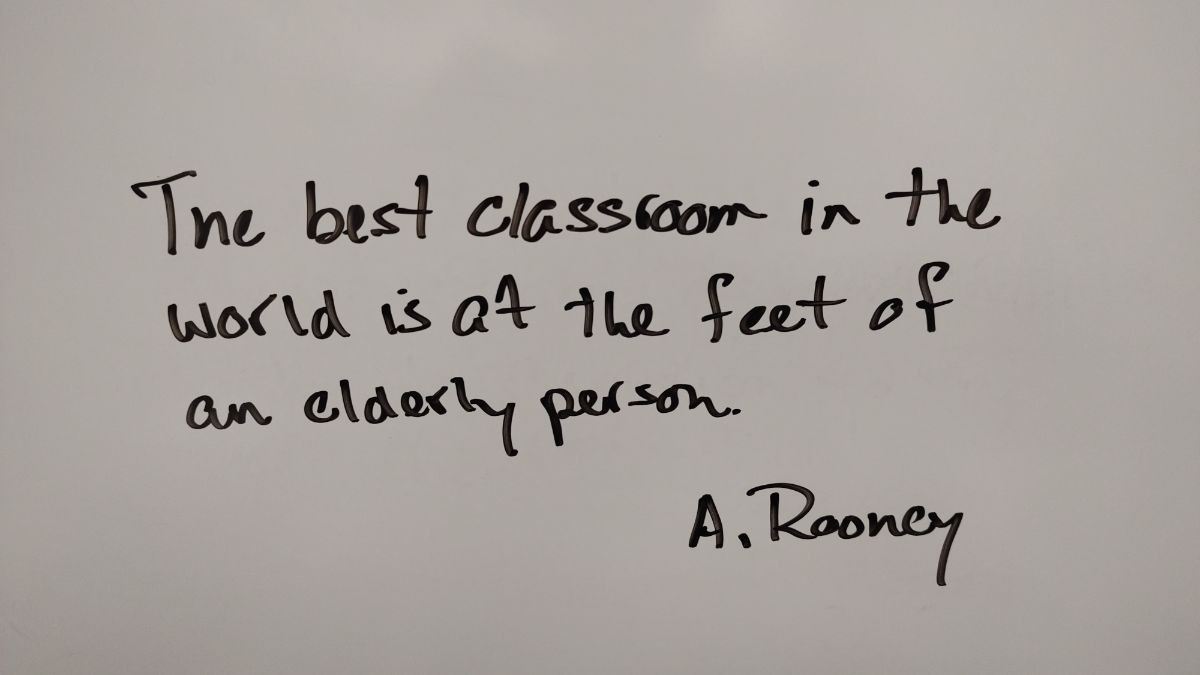 The best classroom in the
world is at the feet of
an elderly person.
A. Rooney